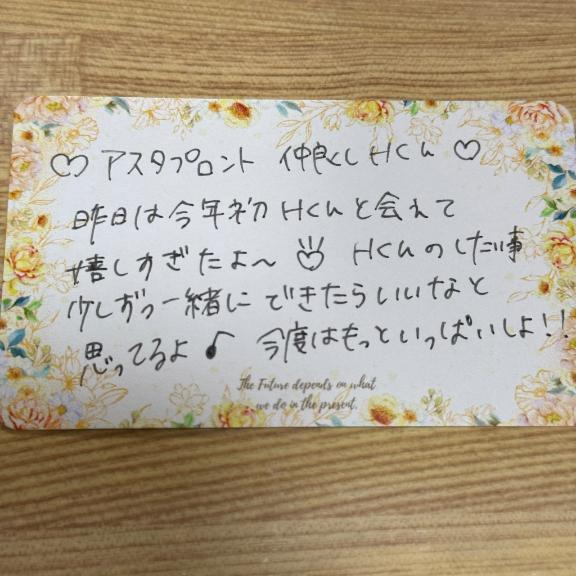 ♡ アスタプロント 仲良くし Hくん ♡
昨日は今年初 Hくんと会えて
嬉しすぎたよ〜 Hくんのしたい事
少しずつ一緒にできたらいいなと
思ってるよ♪ 今度はもっといっぱいしよ!!
The Future depends on what
we do in the present.